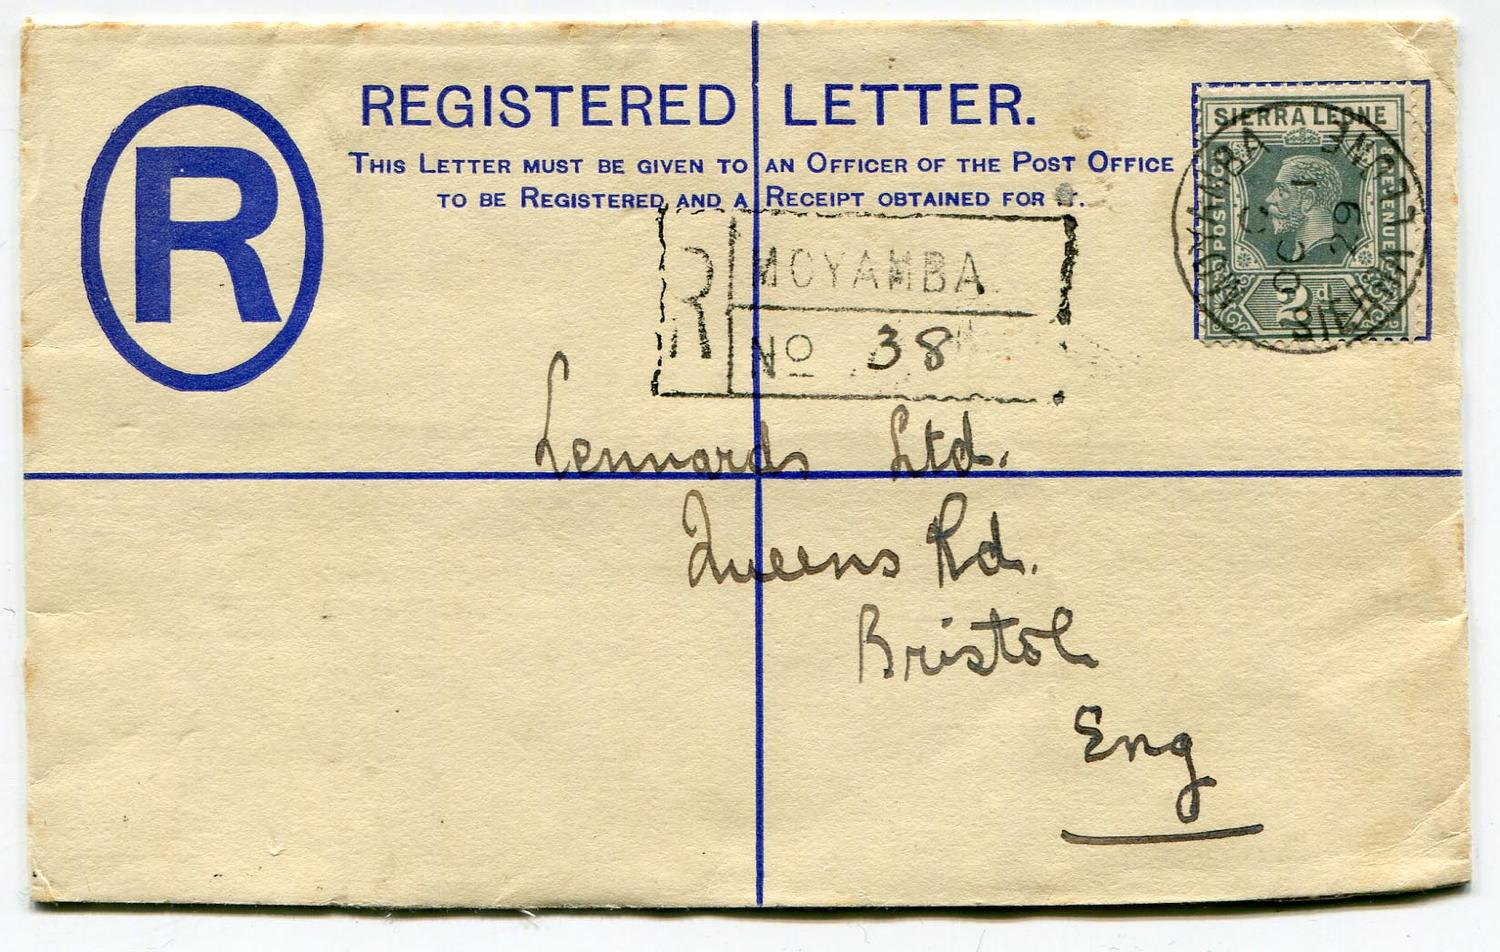 REGISTERED LETTER.
THIS LETTER MUST BE GIVEN TO AN OFFICER OF THE POST OFFICE
TO BE REGISTERED AND A RECEIPT OBTAINED FOR IT.
R
SIERRA LEONE
POSTAGE
REVENUE
2d
MOYAMBA
SIERRA LEONE
OC 1
29
R
MOYAMBA
No 38
Lennards Ltd.
Queens Rd.
Bristol
Eng